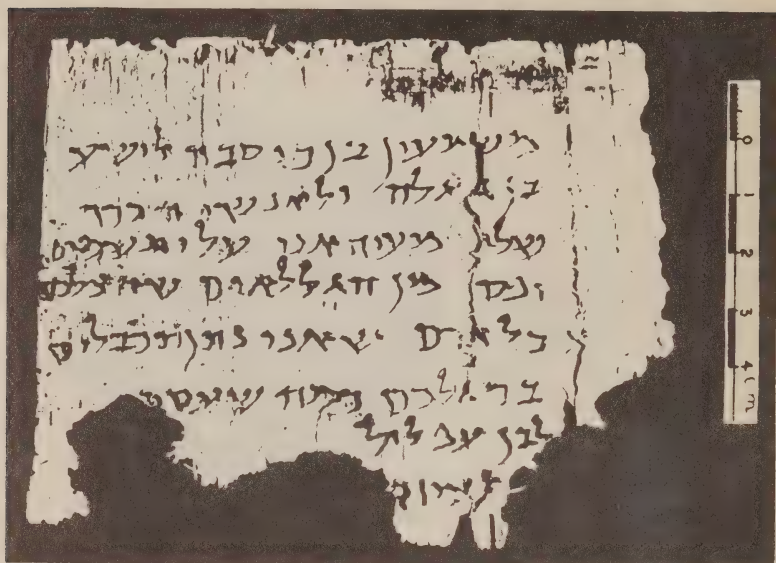 משמעון בן כוסבה לישע
בן גלגלה ולאנשי הכרך
שלו מעיד אני עלי תשמים
יפס מן הגללאים שהצלכם
כל אדם שאני נתן תכבלים
ברגלכם כמה שעסתי
לבן עפלול
0
1
2
3
4 cm